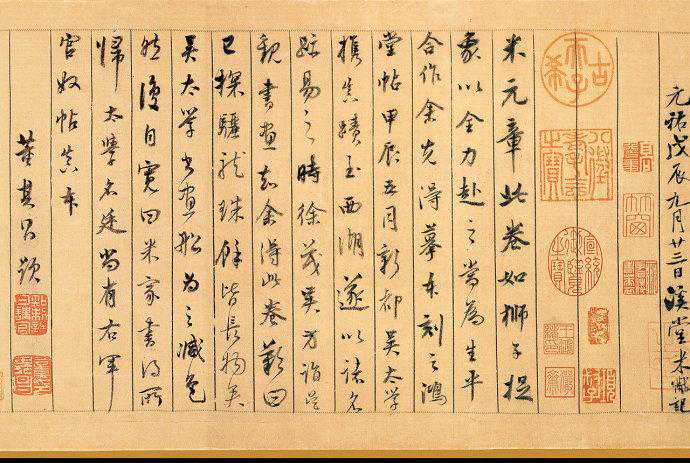 元祐戊辰九月廿三日溪堂米黻記
古希天子
米元章此卷如獅子捉
象以全力赴之當為生平
合作余先得摹本刻之鴻
堂帖甲辰五月新都吳太學
攜真蹟至西湖遂以諸名
跡易之時徐茂吳方詣吳
觀書畫知余得此卷歎曰
已探驪龍珠餘皆長物矣
吳太學書畫船為之減色
然後自寬曰米家書得所
歸太學名廷尚有右軍
官奴帖真本
董其昌題